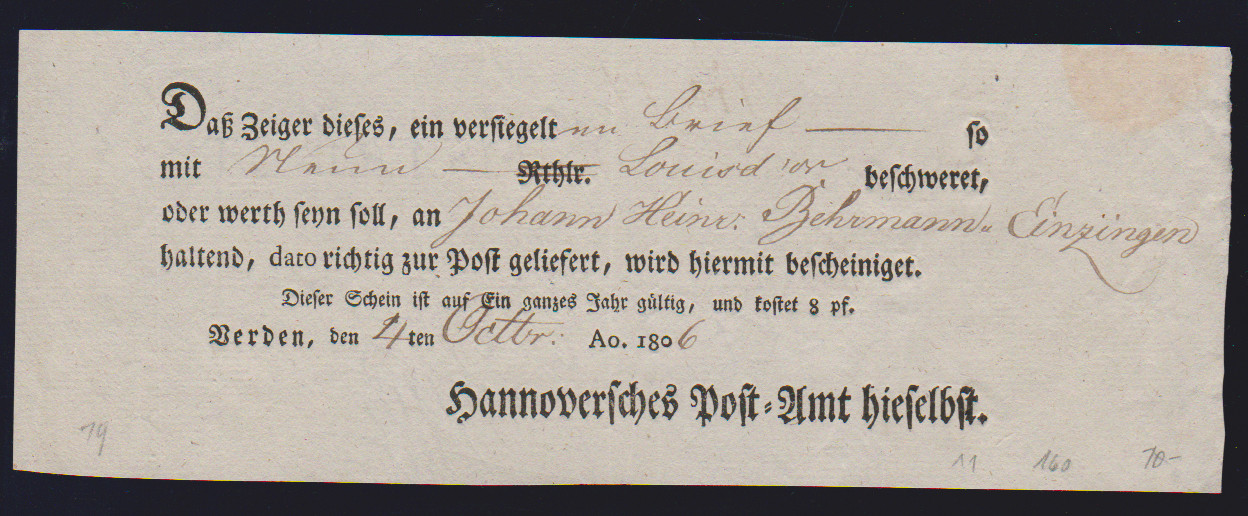 Daß Zeiger dieses, ein versiegelten Brief — so
mit Neun — Rthlr. Louisd'or beschweret,
oder werth seyn soll, an Johann Heinr: Behrmann Einzingen
haltend, dato richtig zur Post geliefert, wird hiermit bescheiniget.
Dieser Schein ist auf Ein ganzes Jahr gültig, und kostet 8 pf.
Verden, den 4ten Octbr: Ao. 1806
Hannoversches Post-Amt hieselbst.
19
11 160 70-